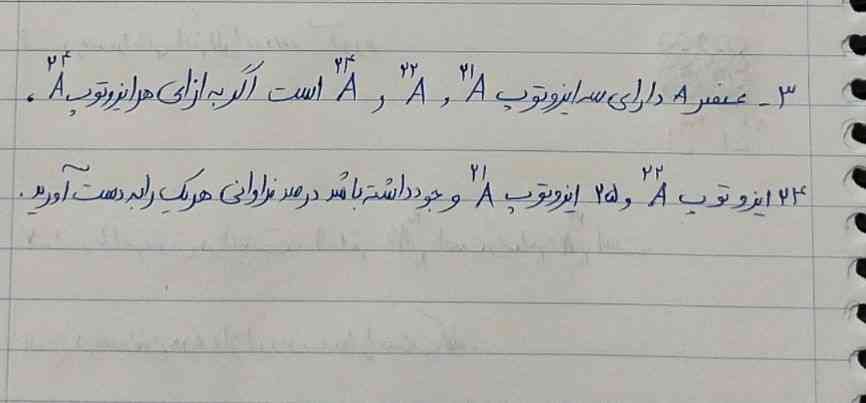 ۳- عنصر A دارای سه ایزوتوپ ²¹A , ²²A , ²⁴A است اگر به ازای هر ایزوتوپ ²⁴A ،
۲۴ ایزوتوپ ²²A و ۲۵ ایزوتوپ ²¹A وجود داشته باشد درصد فراوانی هر یک را به دست آورید.